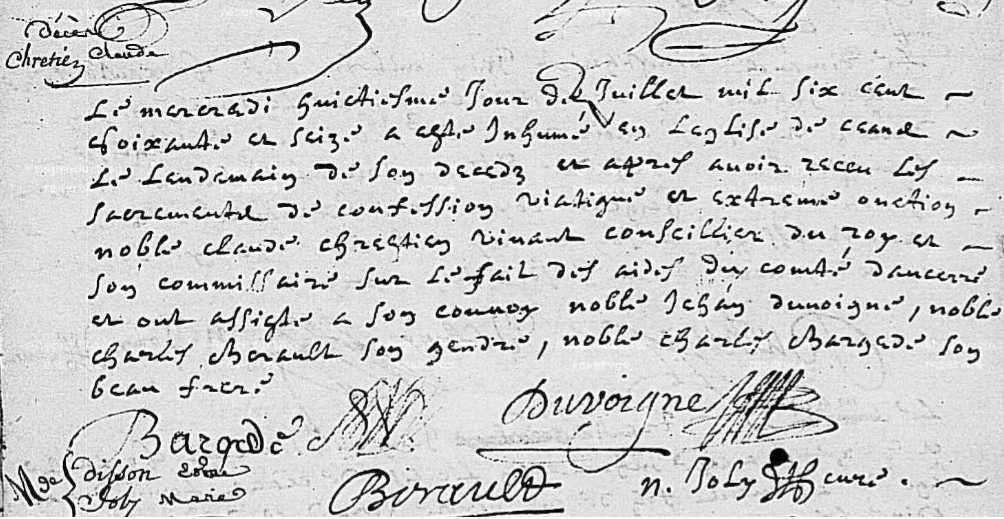 Décès
Chretien Claude
Le mercredi huictiesme Jour de Juillet mil six cent
soixante et seize a este Inhumé en Leglise de ceand
Le Lendemain de son decedz et apres avoir receu les
sacrementz de confession viatique et extreme onction
noble claude chrestien vivant conseillier du roy et
son commissaire sur le fait des aides du comté daucerre
et ont assisté a son convoy noble Jehan duvoigne, noble
charles Berault son gendre, noble charles Bargedé son
beau frere
Bargedé Duvoigne
M de disson Edme
Joly Marie
Berault n. Joly curé.